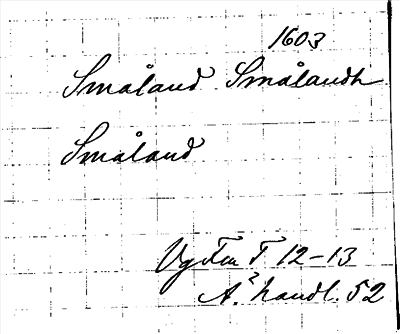 1603
Småland Smålandh
Småland
Vg Fru T 12-13
A:² handl. 52